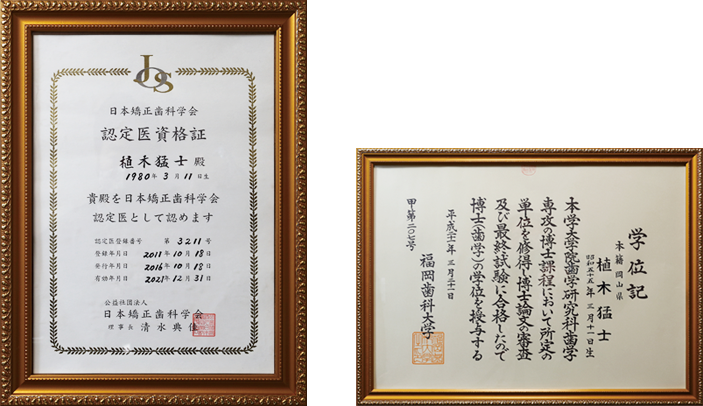 JOS
日本矯正歯科学会
認定医資格証
植木猛士 殿
1980年 3月 11日生
貴殿を日本矯正歯科学会
認定医として認めます
認定医登録番号 第 3211 号
登録年月日 2011年 10月 18日
発行年月日 2016年 10月 18日
有効年月日 2021年 12月 31日
公益社団法人
日本矯正歯科学会
理事長 清水典佳
学位記
本籍 岡山県
植木猛士
昭和五十五年 三月十一日生
本学大学院歯学研究科歯学
専攻の博士課程において所定の
単位を修得し博士論文の審査
及び最終試験に合格したので
博士(歯学)の学位を授与する
平成二十一年 三月二十一日
福岡歯科大学
甲第二〇七号